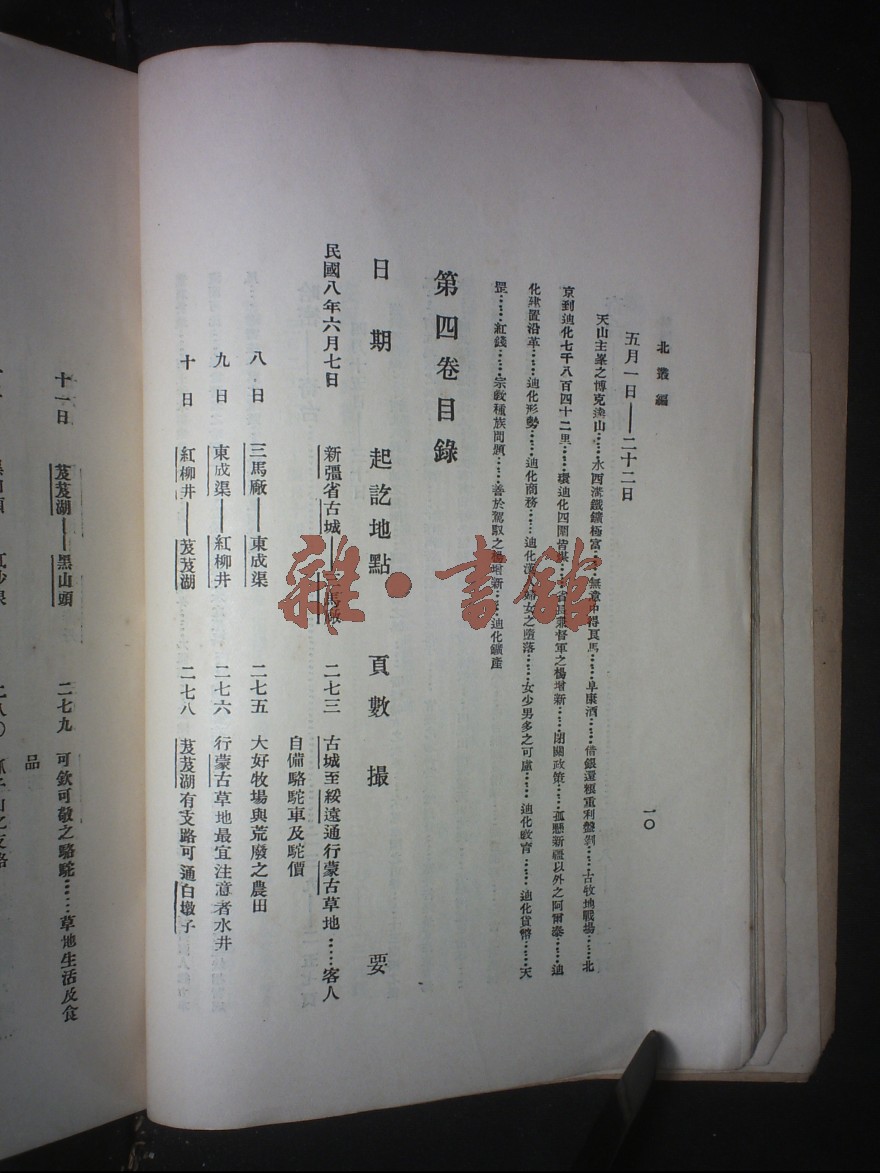 北叢編
一〇
五月一日——二十二日
天山主峯之博克達山……水西溝鐵鑛極富……無意中得良馬……阜康酒……借銀還糧重利盤剝……古牧地戰場……北
京到迪化七千八百四十二里……環迪化四關皆……省長兼督軍之楊增新……閉關政策……孤懸新疆以外之阿爾泰……迪
化建置沿革……迪化形勢……迪化商務……迪化漢人婦女之墮落……女少男多之可慮……迪化教育……迪化貨幣……天
罡……紅錢……宗敎種族問題……善於駕馭之楊增新……迪化鑛產
第四卷目錄
日期 起訖地點 頁數 撮要
民國八年六月七日 新疆省古城——三馬廠 二七三 古城至綏遠通行蒙古草地……客人
自備駱駝車及駝價
八日 三馬廠——東成渠 二七五 大好牧場與荒廢之農田
九日 東成渠——紅柳井 二七六 行蒙古草地最宜注意者水井
十日 紅柳井——芨芨湖 二七八 芨芨湖有支路可通白墩子
十一日 芨芨湖——黑山頭 二七九 可欽可敬之駱駝……草地生活及食
品
雜·書館